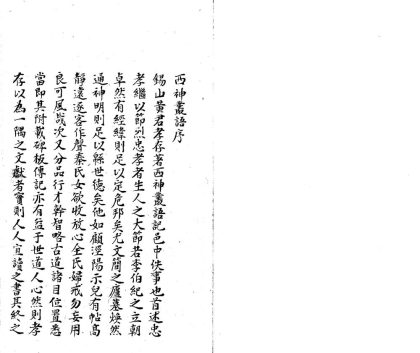 西神叢語序
錫山黃君孝存著西神叢語記邑中佚事也首述忠
孝繼以節烈忠孝者生人之大節若李伯紀之立朝
卓然有經緯則足以定危邦矣尤文簡之廬墓煥然
通神明則足以縣世德矣他如顧涇陽示兒有帖高
靜逺逐客作聲秦氏女欲收放心全氏婦戒勿妄用
良可風哉次又分品行才幹智略古道諸目位置悉
當即其附載碑板傳記亦有益于世道人心然則孝
存以為一隅之文獻者實則人人宜讀之書其終之